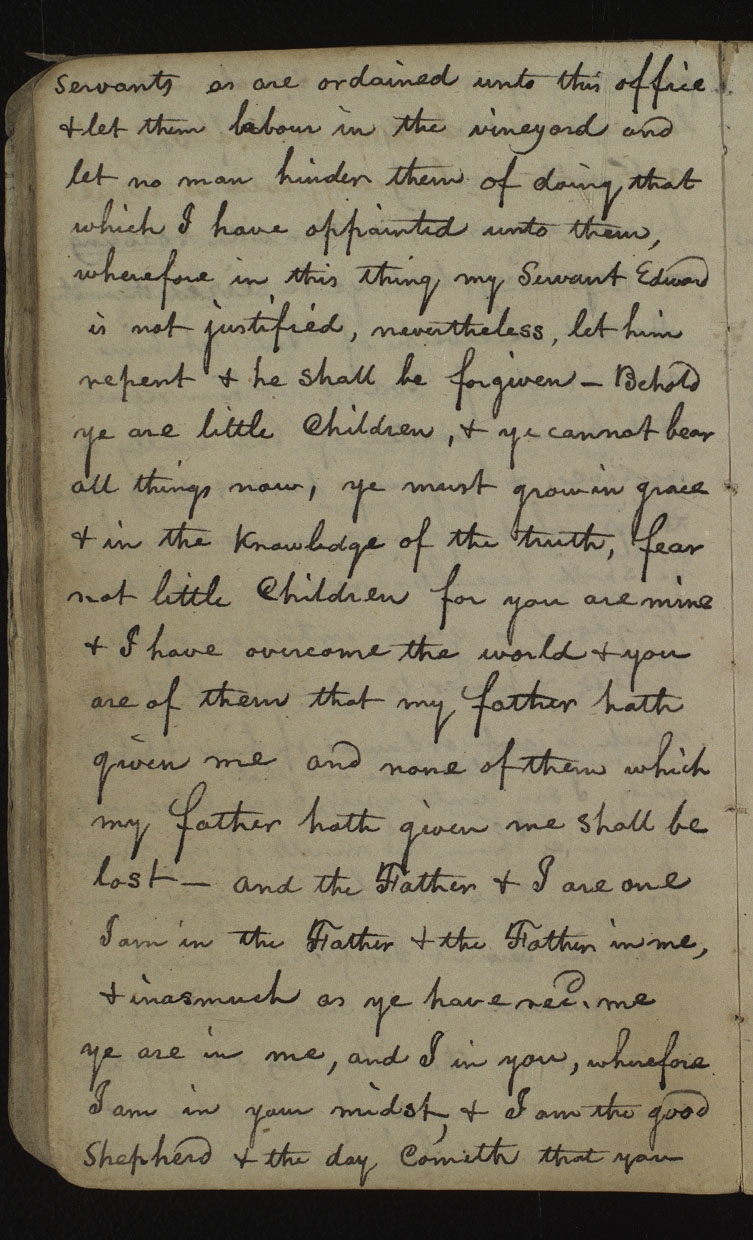 servants as are ordained unto this office
& let them labour in the vineyard and
let no man hinder them of doing that
which I have appointed unto them,
wherefore in this thing my Servant Edward
is not justified, nevertheless, let him
repent & he shall be forgiven — Behold
ye are little Children, & ye cannot bear
all things now, ye must grow in grace
& in the Knowledge of the truth, fear
not little Children for you are mine
& I have overcome the world & you
are of them that my father hath
given me and none of them which
my father hath given me shall be
lost — and the Father & I are one
I am in the Father & the Father in me,
& inasmuch as ye have recd. me
ye are in me, and I in you, wherefore
I am in your midst, & I am the good
Shepherd & the day Cometh that you